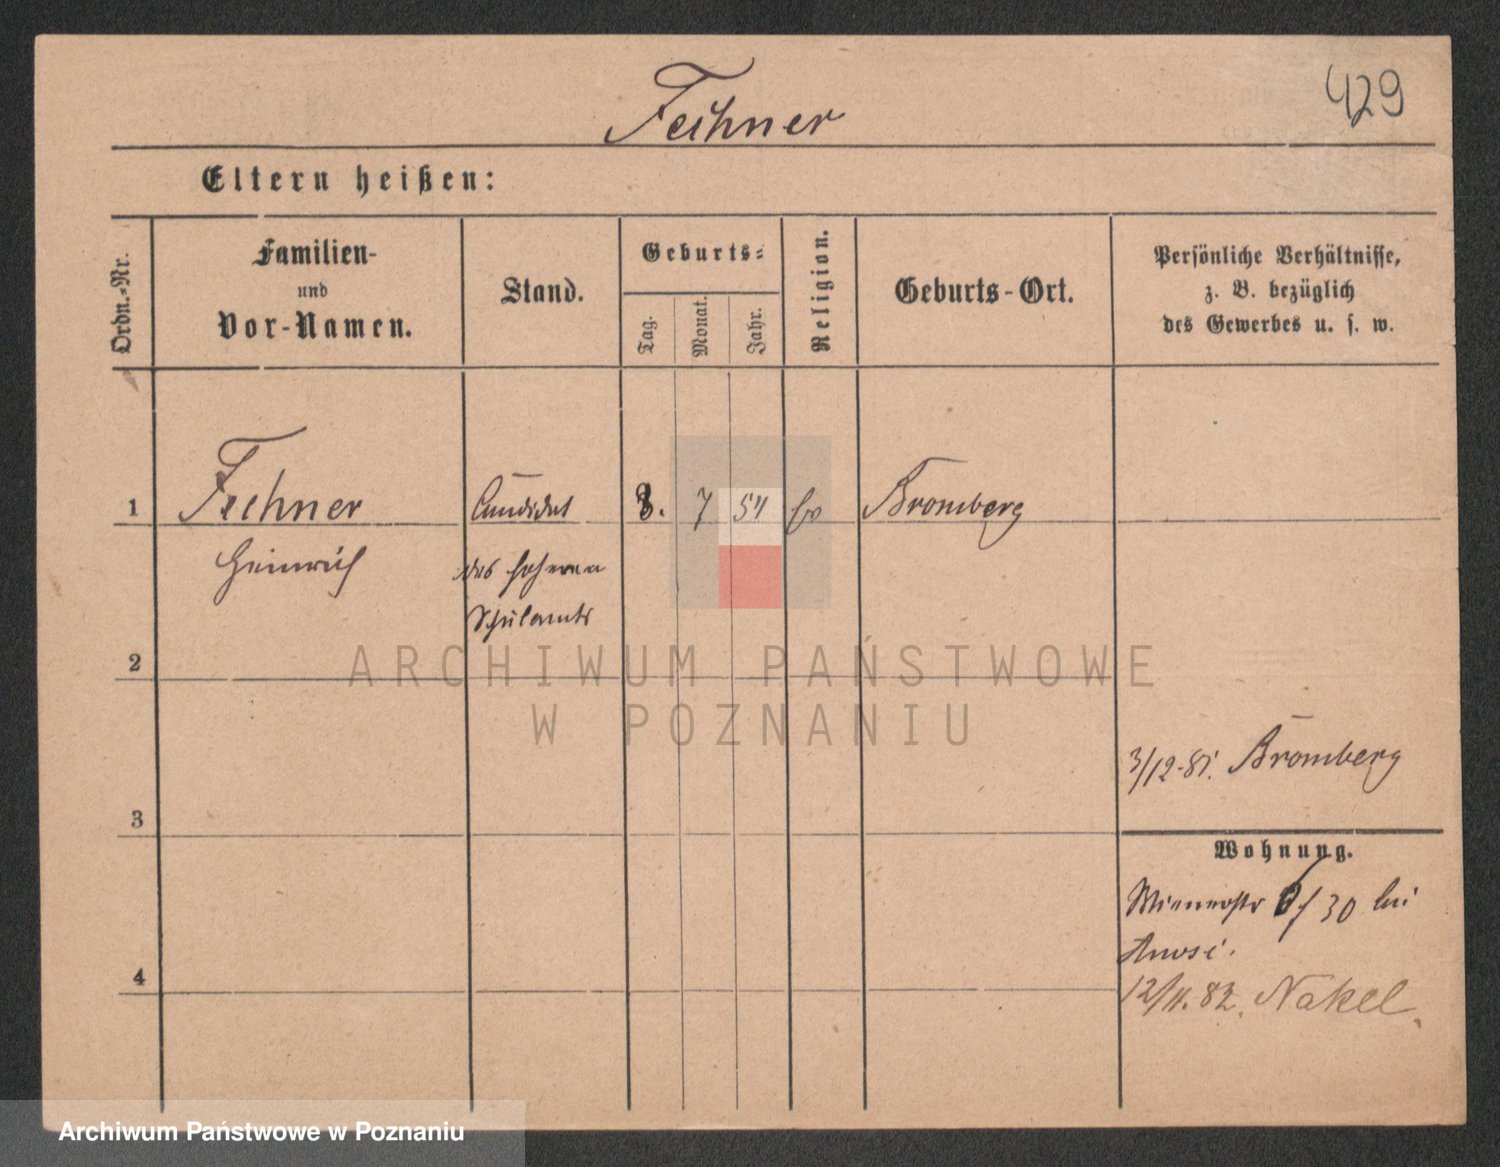 Fechner
429
Eltern heißen:
Ordn.-Nr.
Familien-
und
Vor-Namen.
Stand.
Geburts-
Tag.
Monat.
Jahr.
Religion.
Geburts-Ort.
Persönliche Verhältnisse,
z. B. bezüglich
des Gewerbes u. s. w.
1
Fechner
Candidat
8.
7
54
ev
Bromberg
Heinrich
des höheren
Schulamts
2
ARCHIWUM PAŃSTWOWE
W POZNANIU
3/12.81. Bromberg
3
Wohnung.
Wienerstr 6/30 bei
4
12/11.82. Nakel.
Archiwum Państwowe w Poznaniu